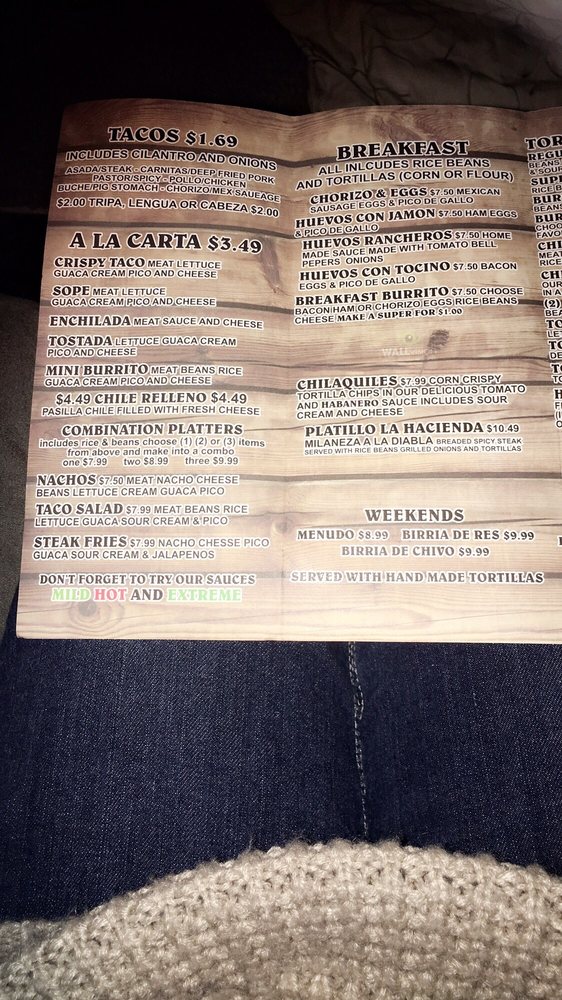 TACOS $1.69
INCLUDES CILANTRO AND ONIONS
ASADA/STEAK - CARNITAS/DEEP FRIED PORK
PASTOR/SPICY - POLLO/CHICKEN
BUCHE/PIG STOMACH - CHORIZO/MEX SAUEAGE
$2.00 TRIPA, LENGUA OR CABEZA $2.00
A LA CARTA $3.49
CRISPY TACO MEAT LETTUCE
GUACA CREAM PICO AND CHEESE
SOPE MEAT LETTUCE
GUACA CREAM PICO AND CHEESE
ENCHILADA MEAT SAUCE AND CHEESE
TOSTADA LETTUCE GUACA CREAM
PICO AND CHEESE
MINI BURRITO MEAT BEANS RICE
GUACA CREAM PICO AND CHEESE
$4.49 CHILE RELLENO $4.49
PASILLA CHILE FILLED WITH FRESH CHEESE
COMBINATION PLATTERS
includes rice & beans choose (1) (2) or (3) items
from above and make into a combo
one $7.99 two $8.99 three $9.99
NACHOS $7.50 MEAT NACHO CHEESE
BEANS LETTUCE CREAM GUACA PICO
TACO SALAD $7.99 MEAT BEANS RICE
LETTUCE GUACA SOUR CREAM & PICO
STEAK FRIES $7.99 NACHO CHESSE PICO
GUACA SOUR CREAM & JALAPENOS
DON'T FORGET TO TRY OUR SAUCES
MILD HOT AND EXTREME
BREAKFAST
ALL INLCUDES RICE BEANS
AND TORTILLAS (CORN OR FLOUR)
CHORIZO & EGGS $7.50 MEXICAN
SAUSAGE EGGS & PICO DE GALLO
HUEVOS CON JAMON $7.50 HAM EGGS
& PICO DE GALLO
HUEVOS RANCHEROS $7.50 HOME
MADE SAUCE MADE WITH TOMATO BELL
PEPERS ONIONS
HUEVOS CON TOCINO $7.50 BACON
EGGS & PICO DE GALLO
BREAKFAST BURRITO $7.50 CHOOSE
BACON HAM OR CHORIZO EGGS RICE BEANS
CHEESE MAKE A SUPER FOR $1.00
CHILAQUILES $7.99 CORN CRISPY
TORTILLA CHIPS IN OUR DELICIOUS TOMATO
AND HABANERO SAUCE INCLUDES SOUR
CREAM AND CHEESE
PLATILLO LA HACIENDA $10.49
MILANEZA A LA DIABLA BREADED SPICY STEAK
SERVED WITH RICE BEANS GRILLED ONIONS AND TORTILLAS
WEEKENDS
MENUDO $8.99 BIRRIA DE RES $9.99
BIRRIA DE CHIVO $9.99
SERVED WITH HAND MADE TORTILLAS